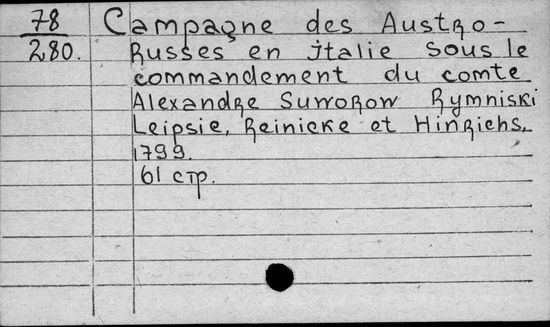 78
280.
Campagne des Austro-
Russes en italie sous le
commandement du comte
Alexandre Suworow Rymniski
Leipsie, Reinicke et Hinrichs,
1799.
61 стр.